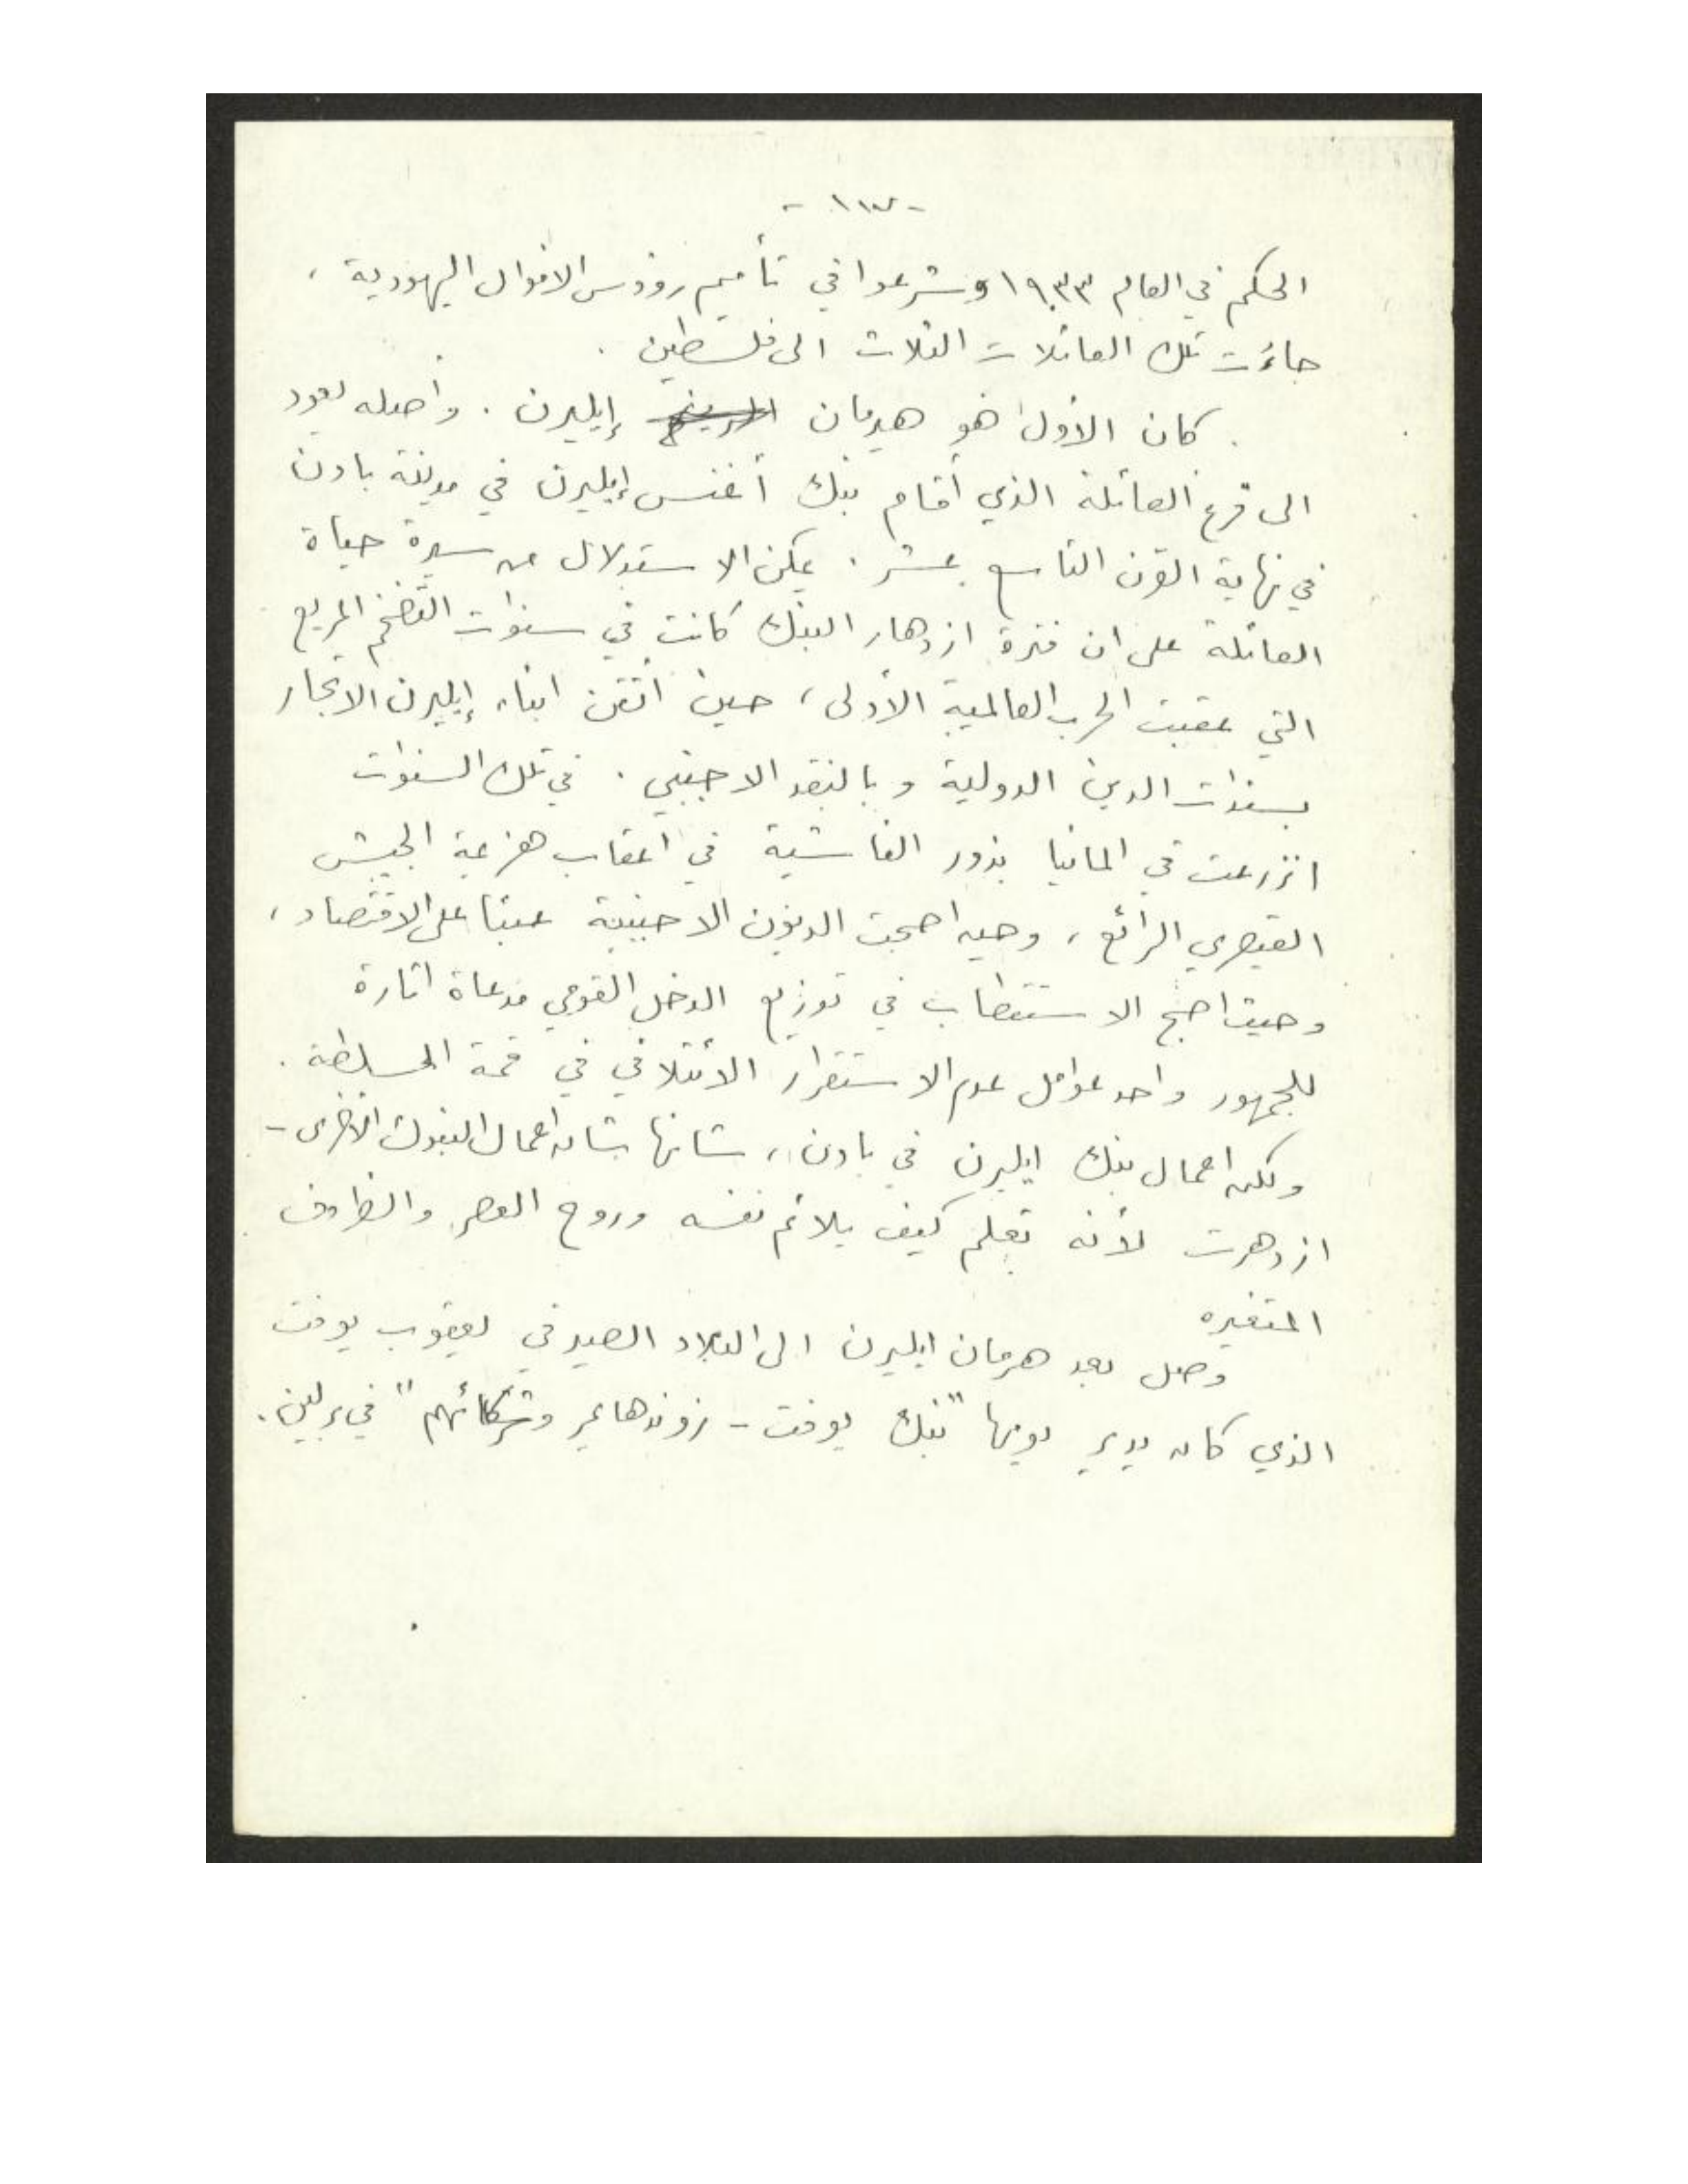 الحكم في العام ١٩٣٣ وشرعوا في تأميم رؤوس الاموال اليهودية ،
جاءت تلك العائلات الثلاث الى فلسطين .
كان الأول هو هرمان إيلرن . وأصله يعود
الى فرع العائلة الذي أقام بنك أغنس إيلرن في مدينة بادن
في نهاية القرن التاسع عشر . يمكن الاستدلال من سيرة حياة
العائلة على ان فترة ازدهار البنك كانت في سنوات التضخم المريع
التي عقبت الحرب العالمية الأولى ، حين أتقن ابناء إيليرن الاتجار
بسندات الدين الدولية وبالنقد الاجنبي . في تلك السنوات
انزرعت في المانيا بذور الفاشية في اعقاب هزيمة الجيش
القيصري الرائع ، وحين اصبحت الديون الاجنبية عبئا على الاقتصاد ،
وحيث اصبح الاستقطاب في توزيع الدخل القومي مدعاة اثارة
للجمهور واحد عوامل عدم الاستقرار الائتلافي في قمة السلطة .
ولكن اعمال بنك ايليرن في بادن ، شانها شان اعمال البنوك الأخرى -
ازدهرت لأنه تعلم كيف يلائم نفسه وروح العصر والظروف
المتغيره
وصل بعد هرمان ايليرن الى البلاد الصيرفي يعقوب يوفت
الذي كان يدير يومها "بنك يوفت - زوندهايمر وشركائهم" في برلين .